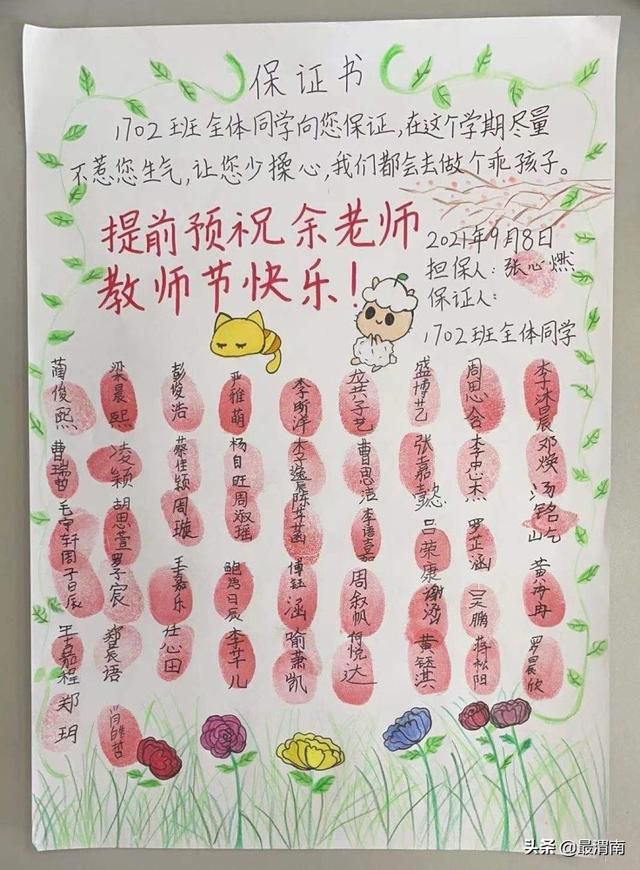 保证书
1702班全体同学向您保证,在这个学期尽量
不惹您生气,让您少操心,我们都会去做个乖孩子。
提前预祝余老师
教师节快乐!
2021年9月8日
担保人:张心燃
保证人:
1702班全体同学
蔺俊熙 梁晨熙 彭俊浩 严雅萌 李昕洋 龙子艺 盛博艺 周思含 李沐晨
曹瑞哲 凌颖 蔡佳颖 杨自旺 曹思涵 张嘉懿 李思杰 邓焕
毛宇轩 胡思萱 周璇 周淑瑶 李语嘉 吕荣康 罗芷涵 汤铭屹
周子辰 罗子宸 王嘉乐 鲍焘辰 傅钰涵 周叙帆 谢涵 吴鹏 黄冉冉
王嘉程 詹宸语 任心田 李芊儿 喻萧凯 何悦达 黄钰淇 蒋松阳 罗晨欣
郑玥 肖皓哲
头条 @最渭南